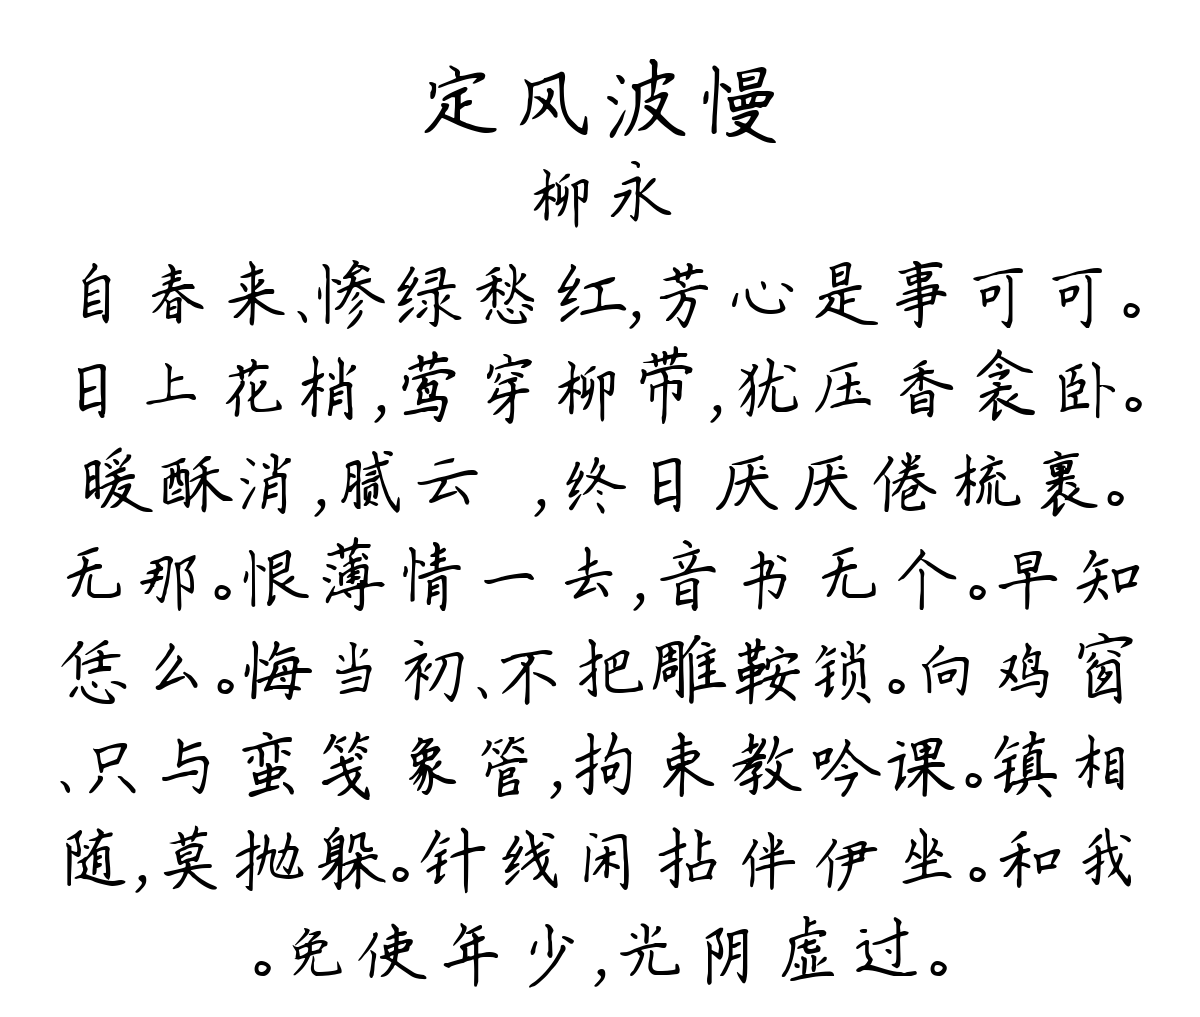 定风波慢
柳永
自春来、惨绿愁红,芳心是事可可。
日上花梢,莺穿柳带,犹压香衾卧。
暖酥消,腻云 ,终日厌厌倦梳裹。
无那。恨薄情一去,音书无个。早知
恁么。悔当初、不把雕鞍锁。向鸡窗
、只与蛮笺象管,拘束教吟课。镇相
随,莫抛躲。针线闲拈伴伊坐。和我
。免使年少,光阴虚过。